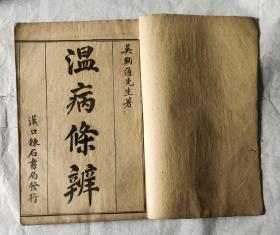 吳鞠通先生著
溫病條辨
漢口錬石書局發行